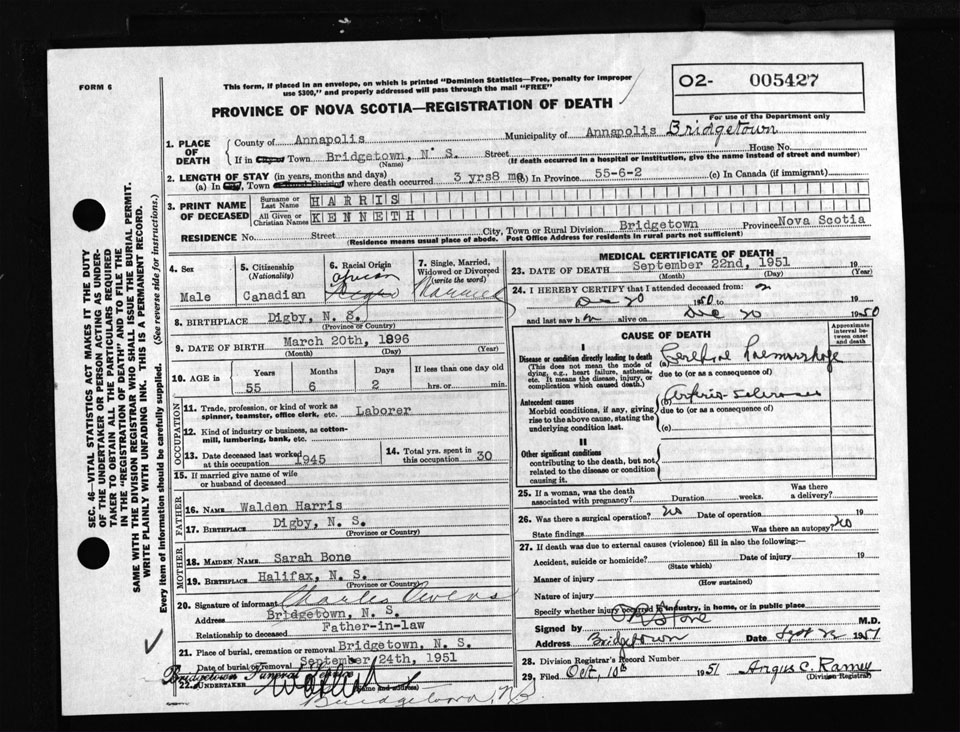 FORM 6
This form, if placed in an envelope, on which is printed "Dominion Statistics—Free, penalty for improper
use $300," and properly addressed will pass through the mail "FREE"
O2- 005427
PROVINCE OF NOVA SCOTIA—REGISTRATION OF DEATH
For use of the Department only
1. PLACE OF DEATH
County of Annapolis Municipality of Annapolis Bridgetown
If in City or Town Bridgetown, N. S. Street House No.
(Name) (If death occurred in a hospital or institution, give the name instead of street and number)
2. LENGTH OF STAY (in years, months and days)
(a) In City, Town where death occurred 3 yrs8 mo (b) In Province 55-6-2 (c) In Canada (if immigrant)
3. PRINT NAME OF DECEASED
Surname or Last Name HARRIS
All Given or Christian Names KENNETH
RESIDENCE No. Street City, Town or Rural Division Bridgetown Province Nova Scotia
(Residence means usual place of abode. Post Office Address for residents in rural parts not sufficient)
4. Sex Male
5. Citizenship (Nationality) Canadian
6. Racial Origin African
7. Single, Married, Widowed or Divorced (write the word) Married
8. BIRTHPLACE Digby, N. S.
(Province or Country)
9. DATE OF BIRTH March 20th, 1896
(Month) (Day) (Year)
10. AGE in Years Months Days If less than one day old
55 6 2 hrs. or min.
OCCUPATION
11. Trade, profession, or kind of work as spinner, teamster, office clerk, etc. Laborer
12. Kind of industry or business, as cotton-mill, lumbering, bank, etc.
13. Date deceased last worked at this occupation 1945
14. Total yrs. spent in this occupation 30
15. If married give name of wife or husband of deceased
FATHER
16. NAME Walden Harris
17. BIRTHPLACE Digby, N. S.
(Province or Country)
MOTHER
18. MAIDEN NAME Sarah Bone
19. BIRTHPLACE Halifax, N. S.
(Province or Country)
20. Signature of informant Charles Owens
Address Bridgetown, N. S.
Relationship to deceased Father-in-law
21. Place of burial, cremation or removal Bridgetown, N. S.
Date of burial or removal September 24th, 1951
Bridgetown Funeral Service
22. UNDERTAKER
(Name and address)
Bridgetown, N.S.
MEDICAL CERTIFICATE OF DEATH
23. DATE OF DEATH September 22nd, 1951
(Month) (Day) (Year)
24. I HEREBY CERTIFY that I attended deceased from:
Dec 20 1950 19
and last saw h alive on Dec 20 1950
CAUSE OF DEATH
Approximate interval between onset and death
I
Disease or condition directly leading to death
(This does not mean the mode of dying, e.g., heart failure, asthenia, etc. It means the disease, injury, or complication which caused death.)
(a) Cerebral haemorrhage
due to (or as a consequence of)
Antecedent causes
Morbid conditions, if any, giving rise to the above cause, stating the underlying condition last.
(b) Arterio-sclerosis
due to (or as a consequence of)
(c)
II
Other significant conditions
contributing to the death, but not related to the disease or condition causing it.
25. If a woman, was the death associated with pregnancy? Duration weeks. Was there a delivery?
26. Was there a surgical operation? No Date of operation 19
State findings Was there an autopsy? No
27. If death was due to external causes (violence) fill in also the following:—
Accident, suicide or homicide? Date of injury 19
(State which)
Manner of injury
(How sustained)
Nature of injury
Specify whether injury occurred in industry, in home, or in public place
Signed by M.D.
Address Bridgetown Date Sept 22 1951
28. Division Registrar's Record Number
29. Filed Oct. 10th 1951 Angus C. Ramey
(Division Registrar)
SEC. 46—VITAL STATISTICS ACT MAKES IT THE DUTY
OF THE UNDERTAKER OR PERSON ACTING AS UNDER-
TAKER TO OBTAIN ALL THE PARTICULARS REQUIRED
IN THE "REGISTRATION OF DEATH" AND TO FILE THE
SAME WITH THE DIVISION REGISTRAR WHO SHALL ISSUE THE BURIAL PERMIT.
WRITE PLAINLY WITH UNFADING INK. THIS IS A PERMANENT RECORD.
Every item of information should be carefully supplied. (See reverse side for instructions.)